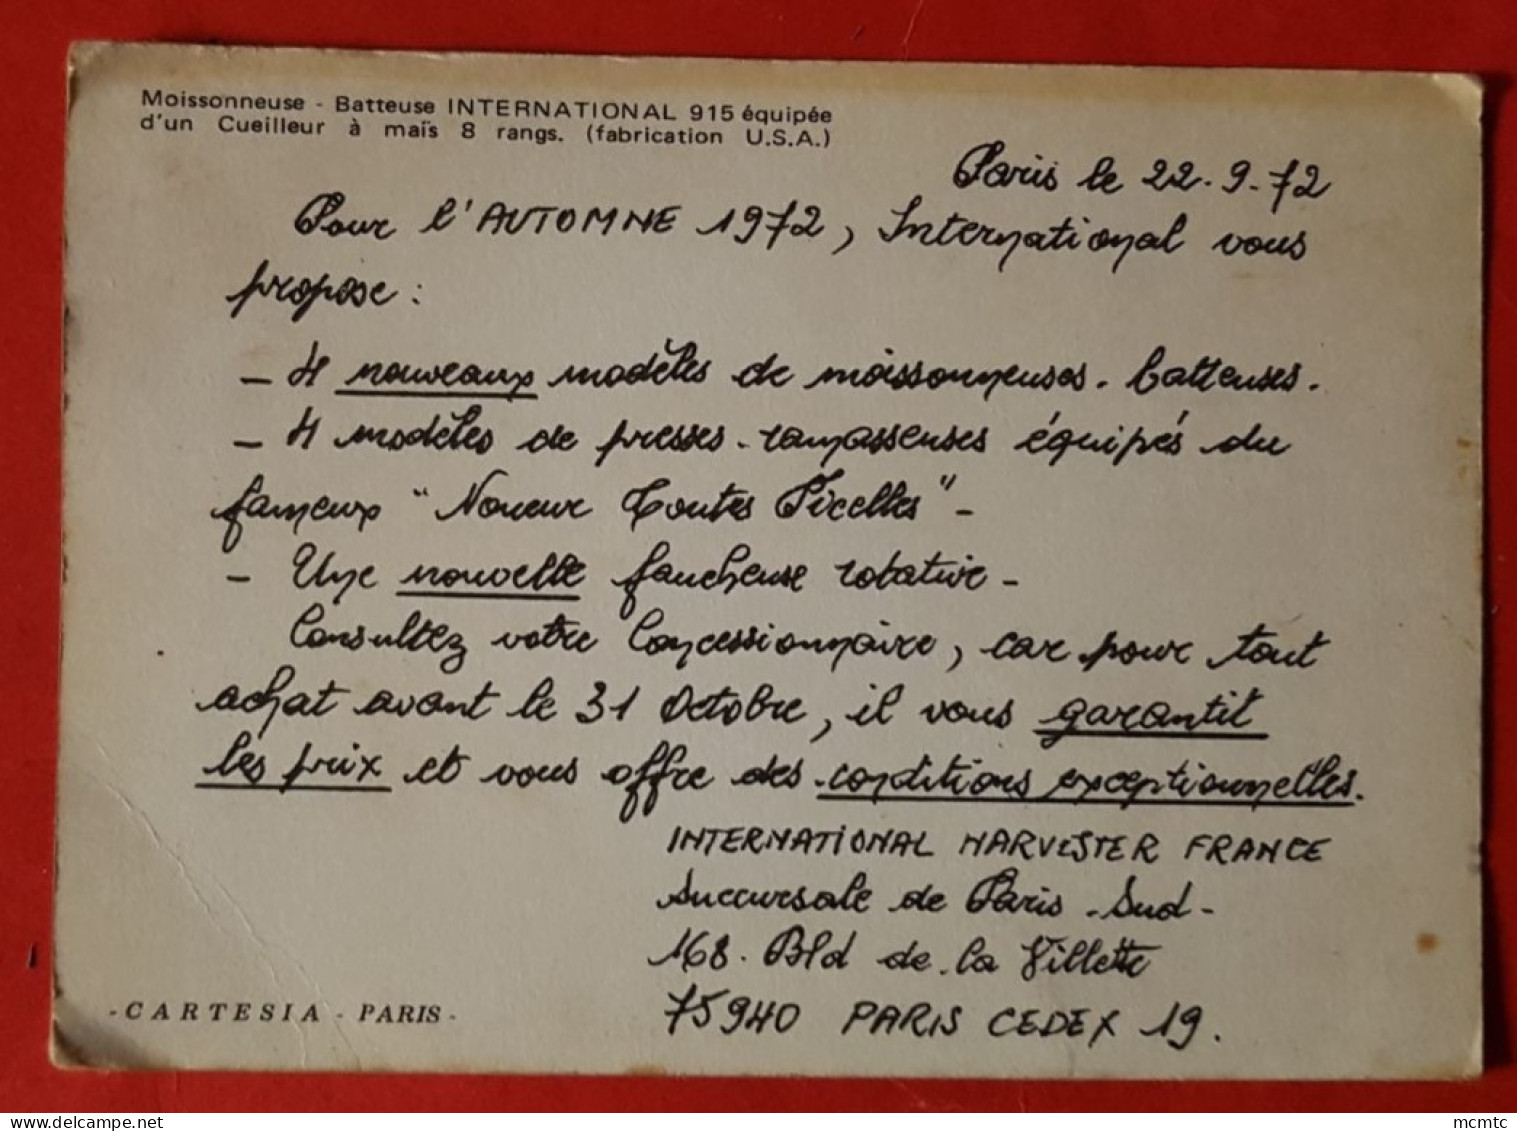 Moissonneuse - Batteuse INTERNATIONAL 915 équipée
d'un Cueilleur à maïs 8 rangs. (fabrication U.S.A.)
Paris le 22-9-72
Pour l'AUTOMNE 1972, International vous
propose :
- 4 nouveaux modèles de moissonneuses-batteuses.
- 4 modèles de presses-ramasseuses équipés du
fameux "Noueur Toutes Ficelles" -
- Une nouvelle faucheuse rotative -
Consultez votre Concessionnaire, car pour tout
achat avant le 31 Octobre, il vous garantit
les prix et vous offre des conditions exceptionnelles.
INTERNATIONAL HARVESTER FRANCE
Succursale de Paris-Sud-
168. Bld de la Villette
75940 PARIS CEDEX 19.
- CARTESIA - PARIS -
mcmtc